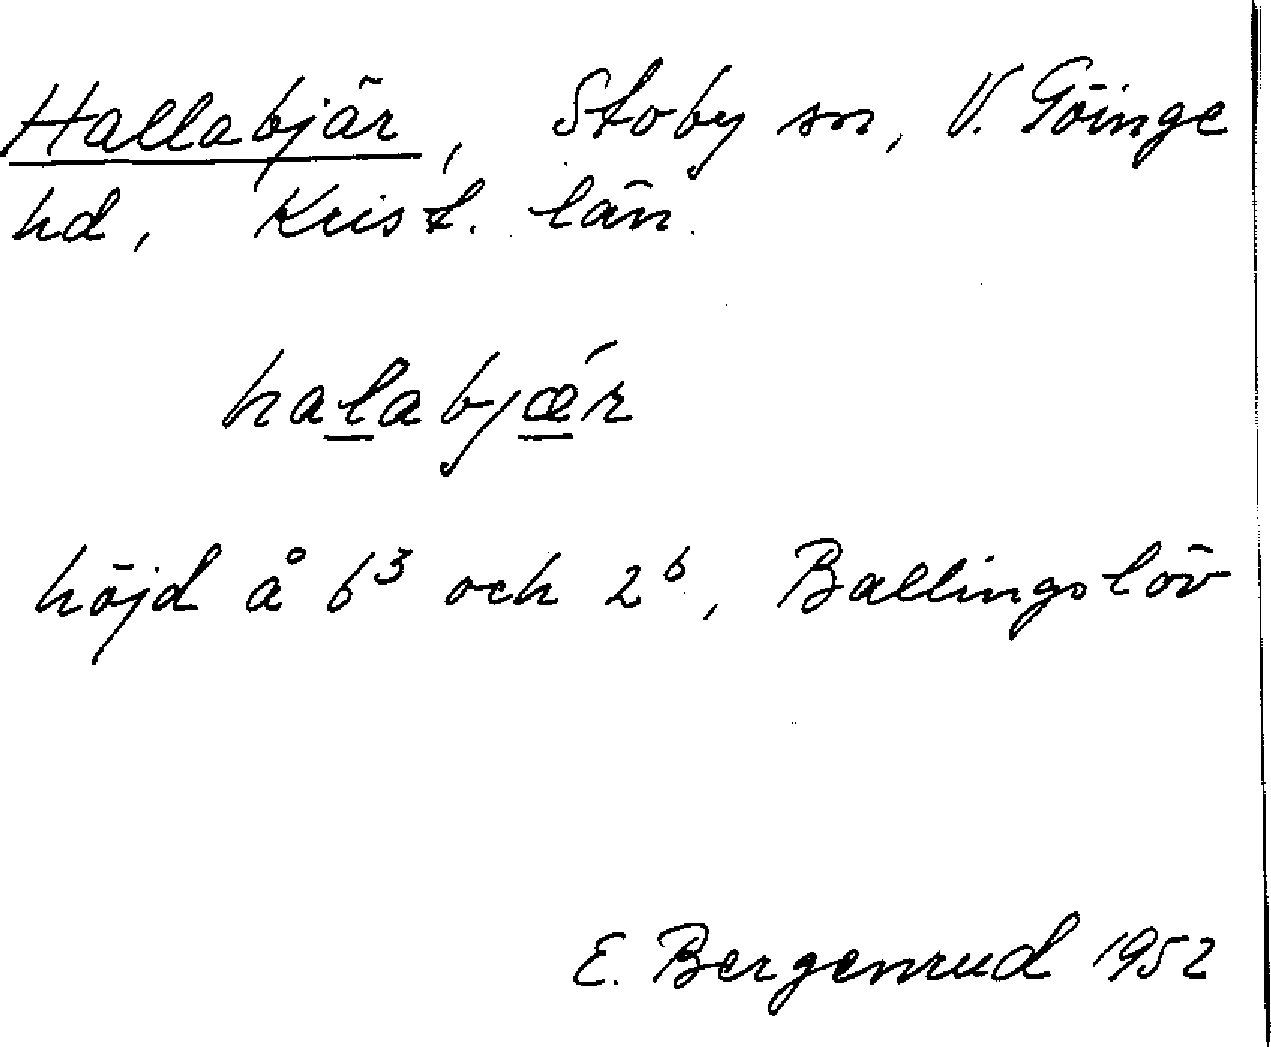 Hallabjär, Stoby sn, V. Göinge
hd, Krist. län.
halabjǽr
höjd å 6³ och 2⁶, Ballingslöv
E. Bergenrud 1952